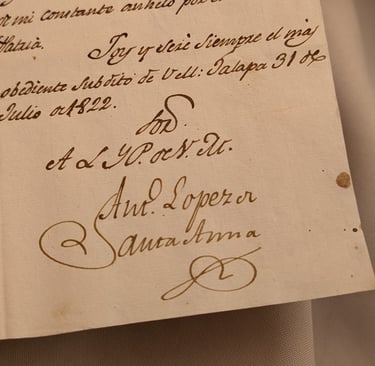 mi constante anhelo por
Patria.
Soy y seré siempre el mas
obediente subdito de V.M: Jalapa 31 de
Julio de 1822.
Sor.
A L I P. de V. M.
Ant.o Lopez de
Santa Anna